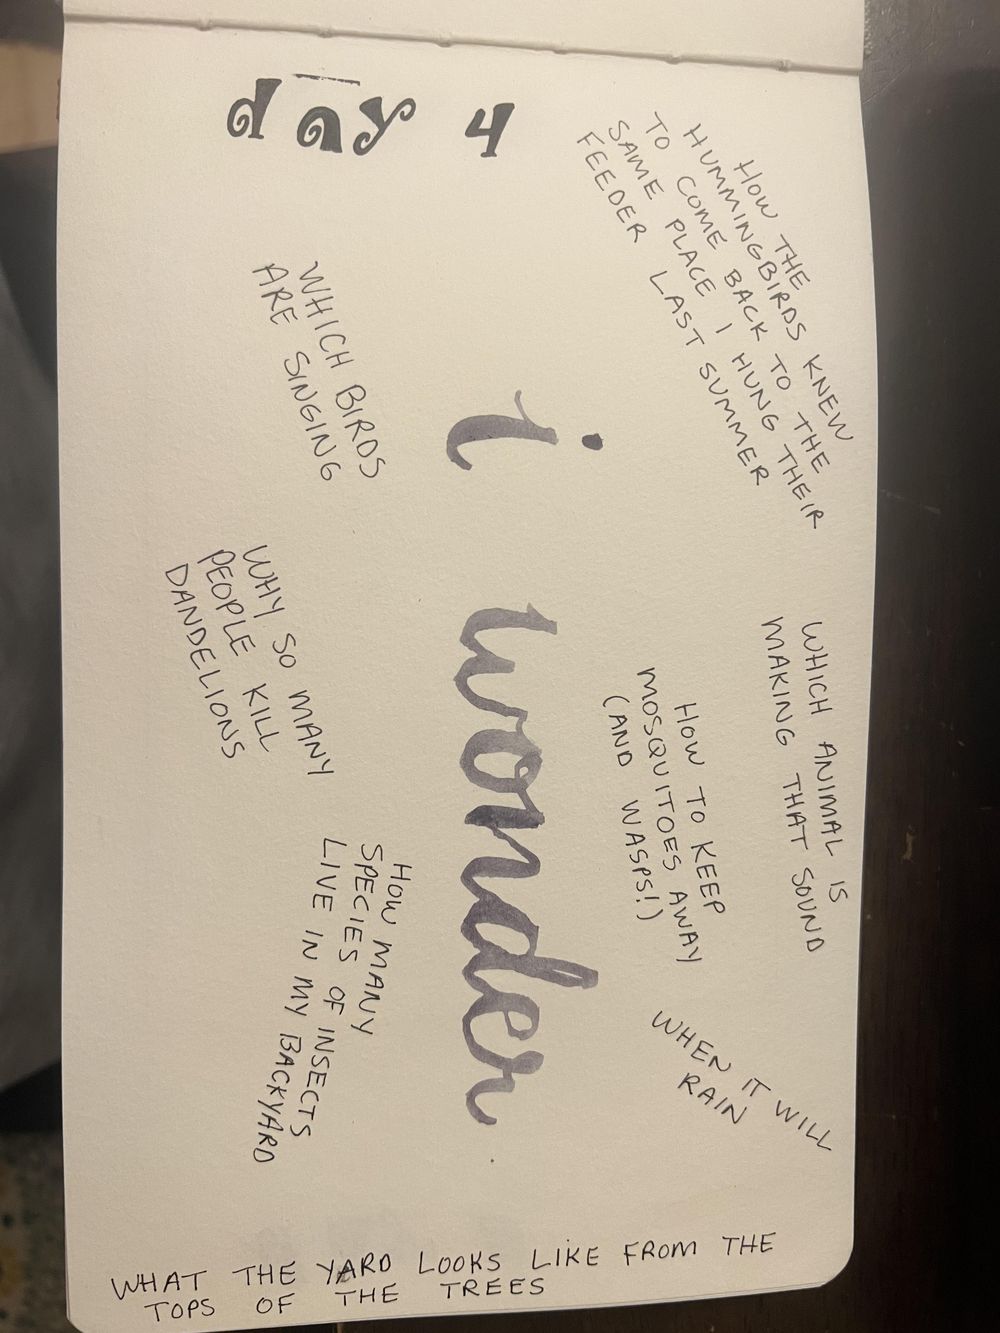 day 4
HOW THE
HUMMINGBIRDS KNEW
TO COME BACK TO THE
SAME PLACE I HUNG THEIR
FEEDER LAST SUMMER
WHICH BIRDS
ARE SINGING
i wonder
WHICH ANIMAL IS
MAKING THAT SOUND
HOW TO KEEP
MOSQUITOES AWAY
(AND WASPS!)
WHY SO MANY
PEOPLE KILL
DANDELIONS
HOW MANY
SPECIES OF INSECTS
LIVE IN MY BACKYARD
WHEN IT WILL
RAIN
WHAT THE YARD LOOKS LIKE FROM THE
TOPS OF THE TREES